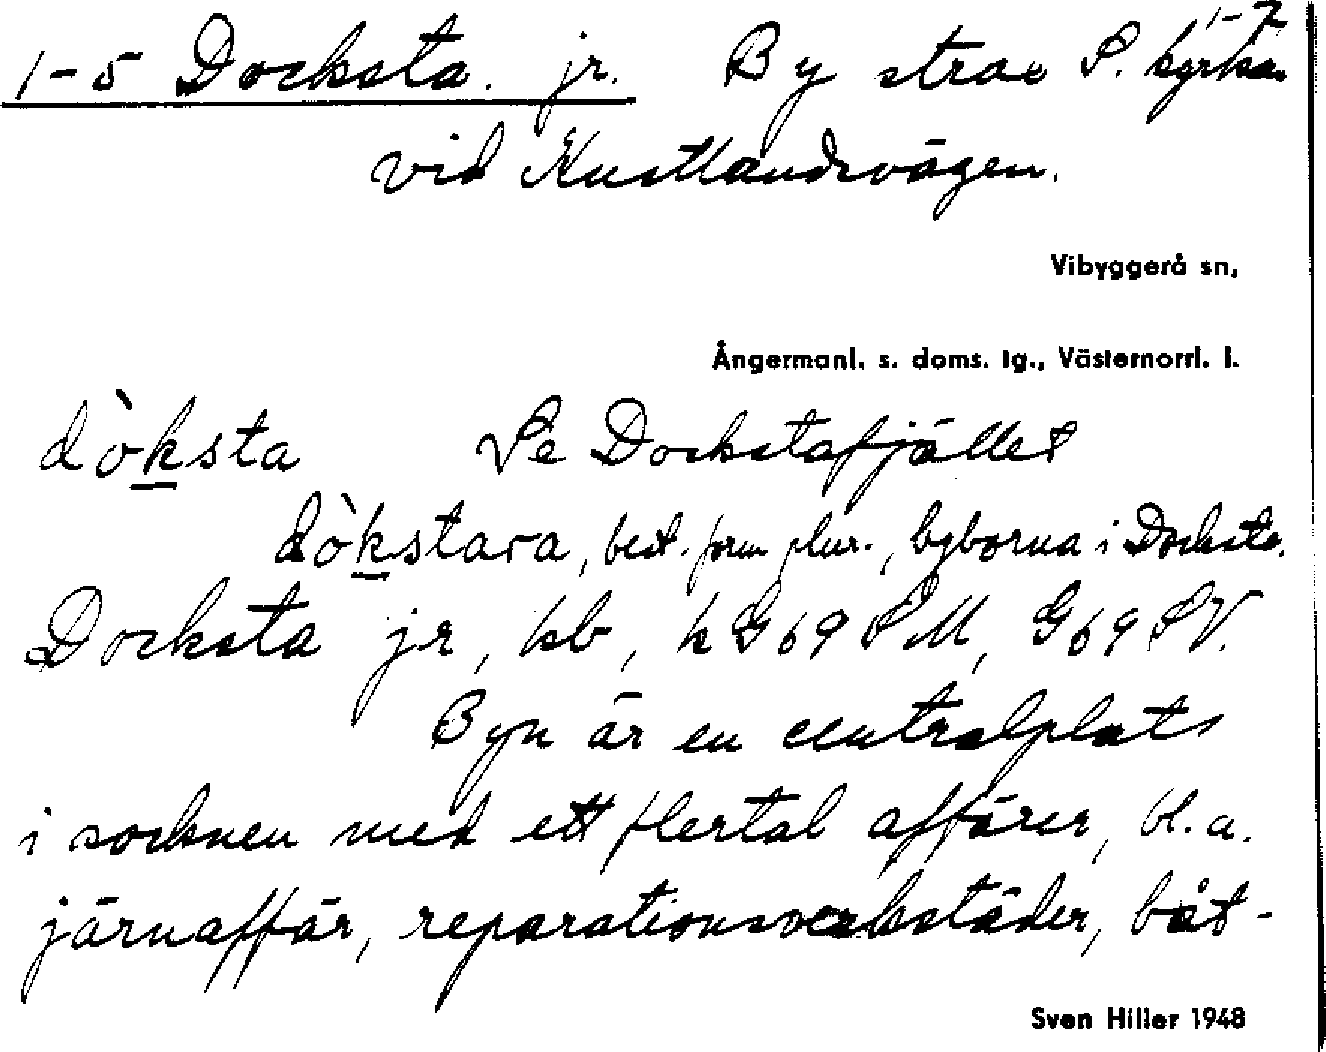 1-7
1-5 Docksta. jr. By strax S. kyrkan
vid Kustlandsvägen.
Vibyggerå sn,
Ångermanl. s. doms. tg., Västernorrl. l.
dòksta Se Dockstafjället
dòkstara, best. form plur., byborna i Docksta.
Docksta jr, kb, k G69 SM, G69 SV.
Byn är en centralplats
i socknen med ett flertal affärer, bl.a.
järnaffär, reparationsverkstäder, båt-
Sven Hiller 1948